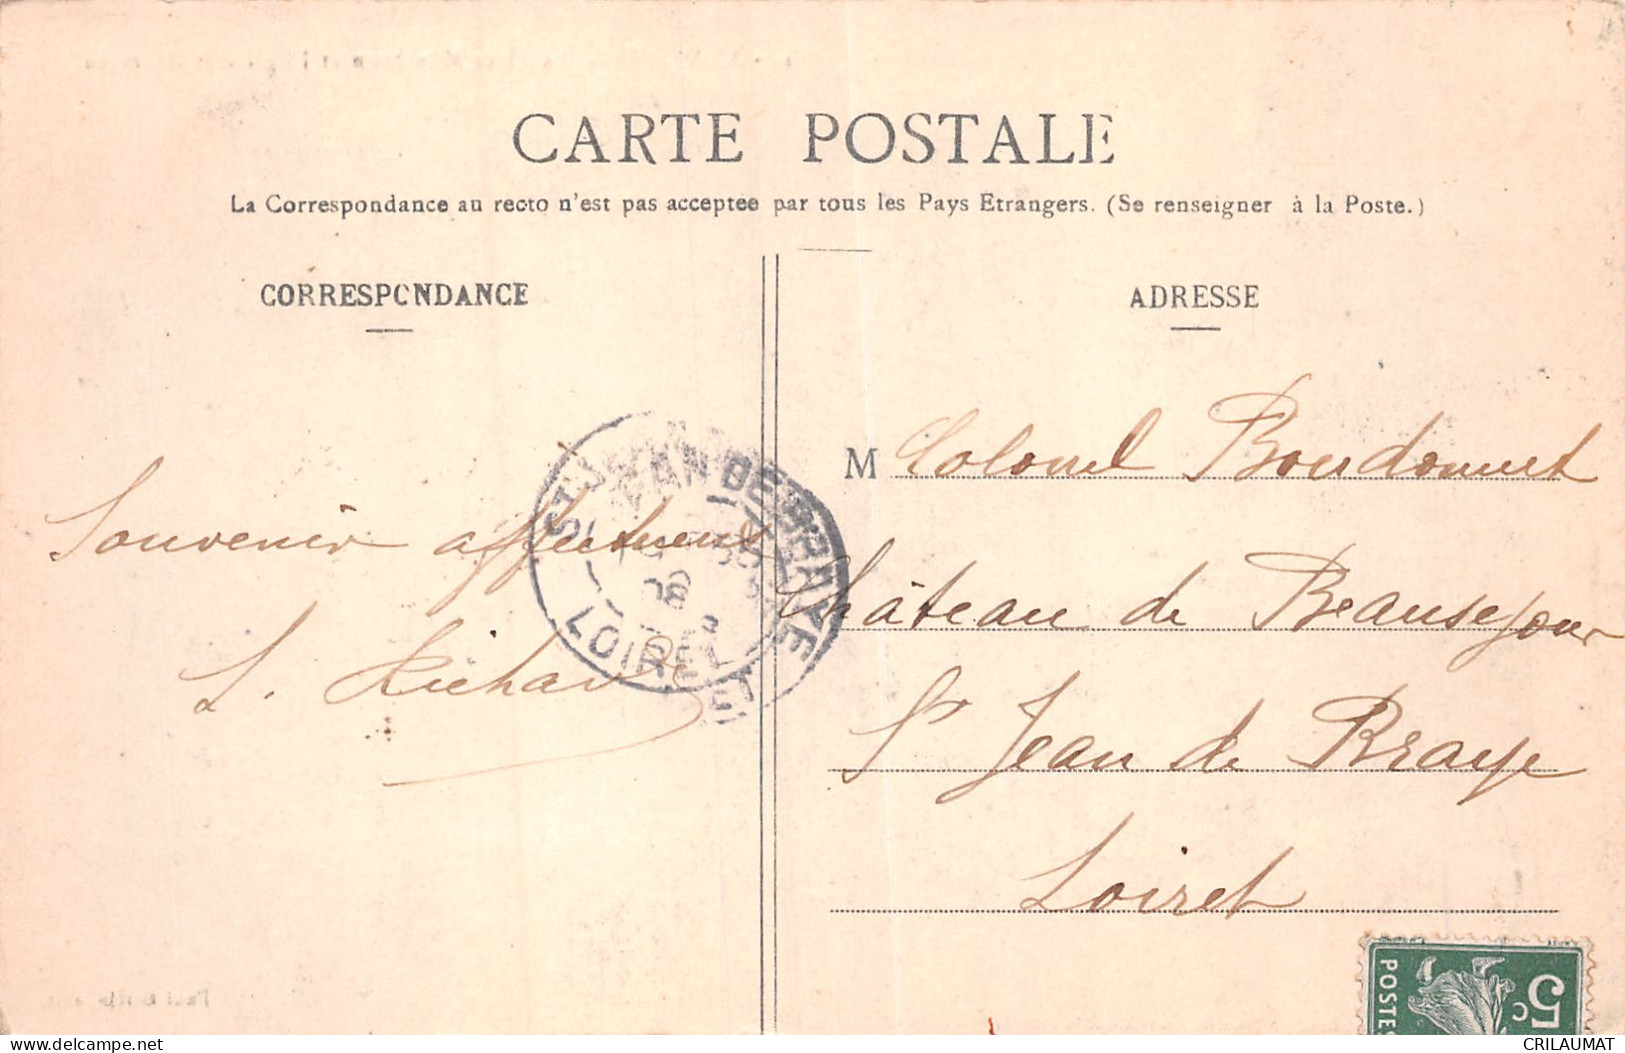 CARTE POSTALE
La Correspondance au recto n'est pas acceptee par tous les Pays Etrangers. (Se renseigner à la Poste.)
CORRESPONDANCE
ADRESSE
Souvenir affectueux
L. Richard
M Colonel Bourdonnet
Château de Beausejour
St Jean de Braye
Loiret
ST JEAN DE BRAYE
LOIRET
5c
POSTES
delcampe.net
CRILAUMAT